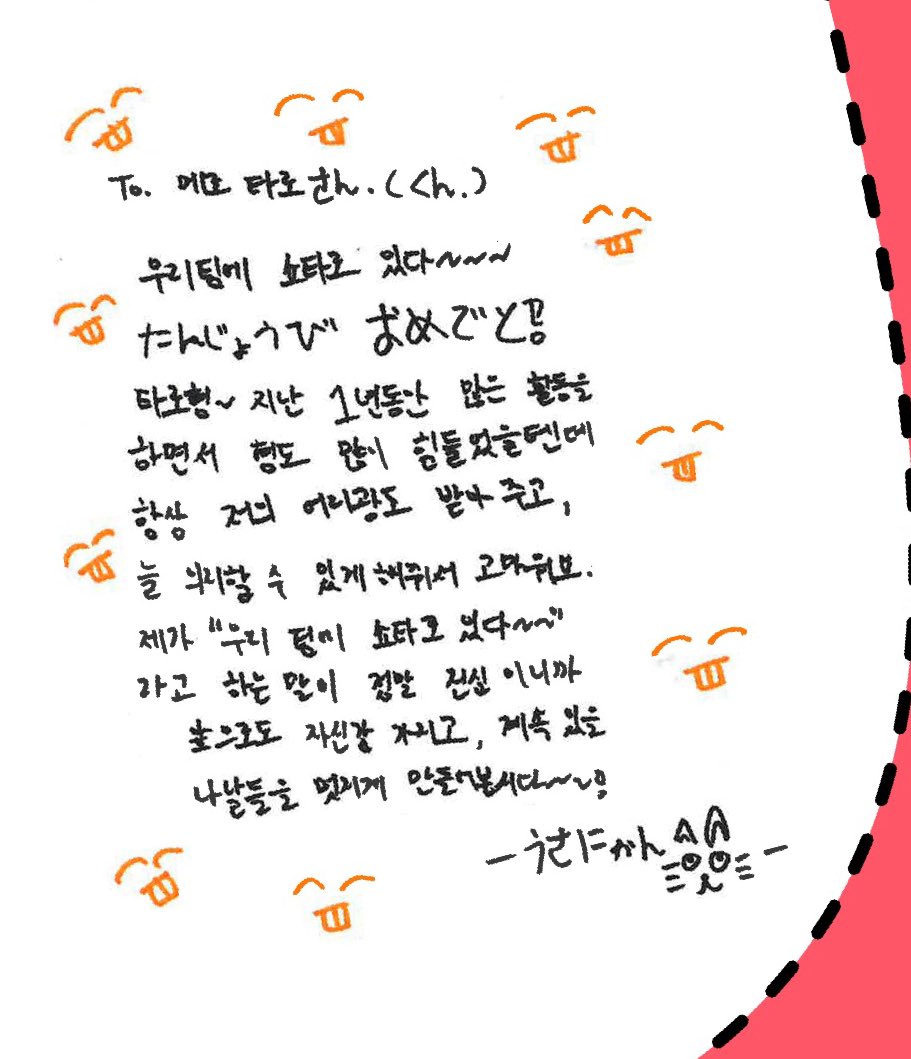 To. 메모 타로 さん. (くん.)
우리팀에 쇼타로 있다~~~
たんじょうび おめでと공
타로형~ 지난 1년동안 많은 활동을
하면서 형도 많이 힘들었을텐데
항상 저의 어리광도 받아 주고,
늘 의지할 수 있게 해줘서 고마워요.
제가 "우리 팀에 쇼타로 있다~~"
라고 하는 말이 정말 진심 이니까
앞으로도 자신감 가지고, 계속 있을
나날들을 멋지게 만들어봅시다~~!